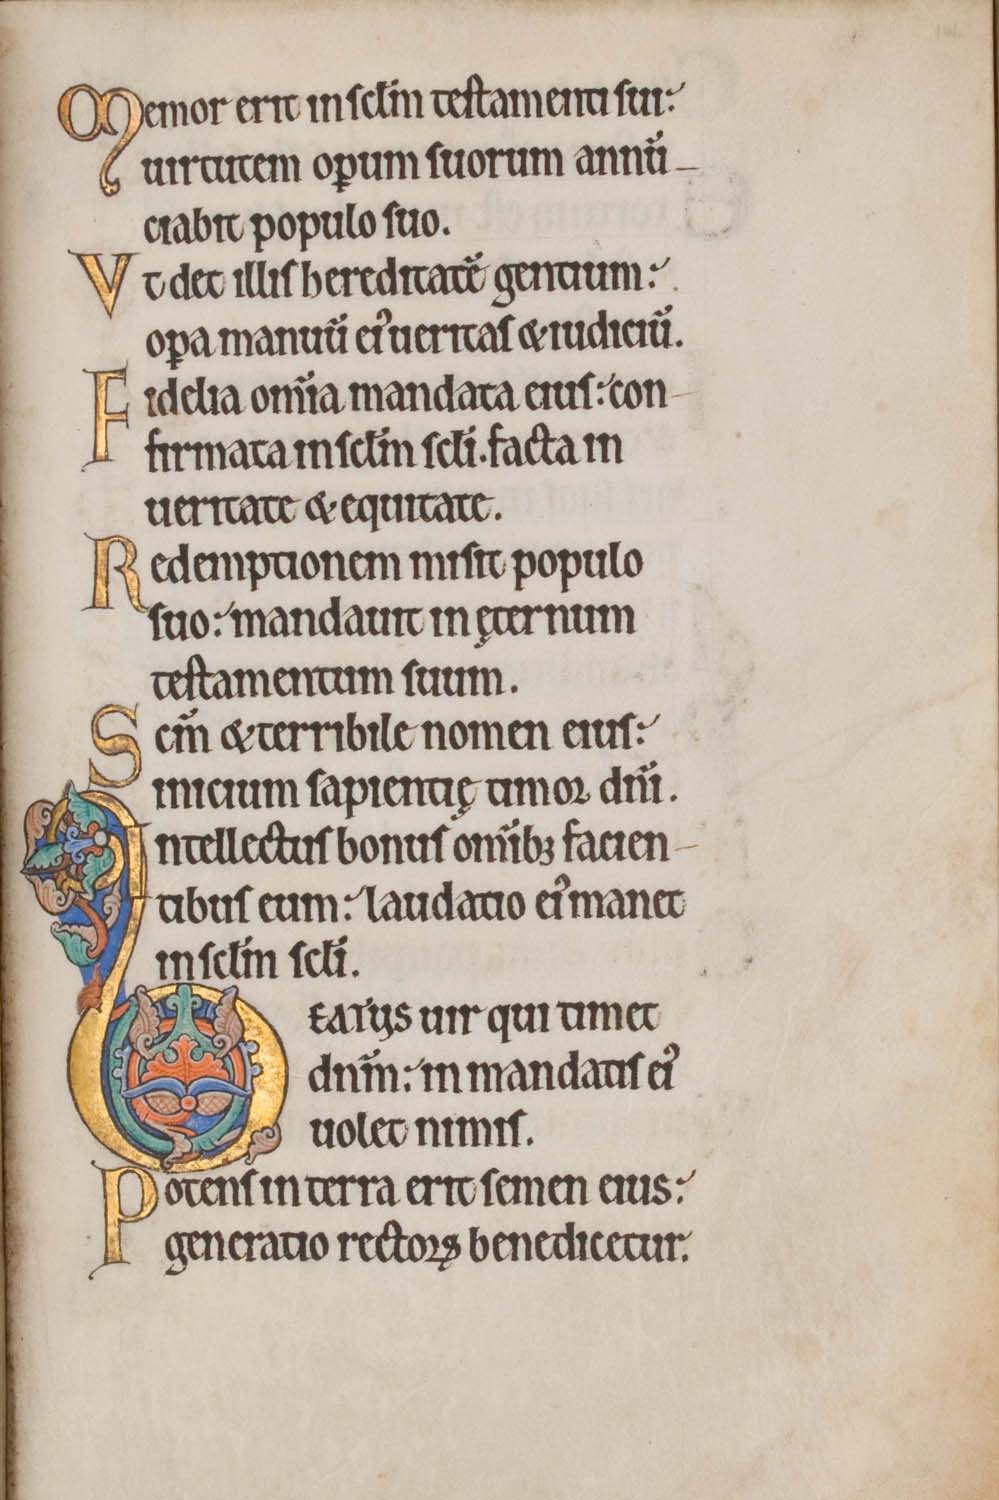 Memor erit in sc̄lm testamenti sui:
uirtutem oꝑum suorum annū-
ciabit populo suo.
Vt det illis hereditatē gentium:
oꝑa manuū ei᾽ ueritas & iudiciū.
Fidelia om̄ia mandata eius: con-
firmata in sc̄lm sc̄li. facta in
ueritate & equitate.
Redemptionem misit populo
suo: mandauit in ęternum
testamentum suum.
Sc̄m & terribile nomen eius:
inicium sapientię timor dn̄i.
Intellectus bonus om̄ibꝫ facien-
tibus eum: laudatio ei᾽ manet
in sc̄lm sc̄li.
BEATUS uir qui timet
dn̄m: in mandatis ei᾽
uolet nimis.
Potens in terra erit semen eius:
generatio rectoꝝ benedicetur.